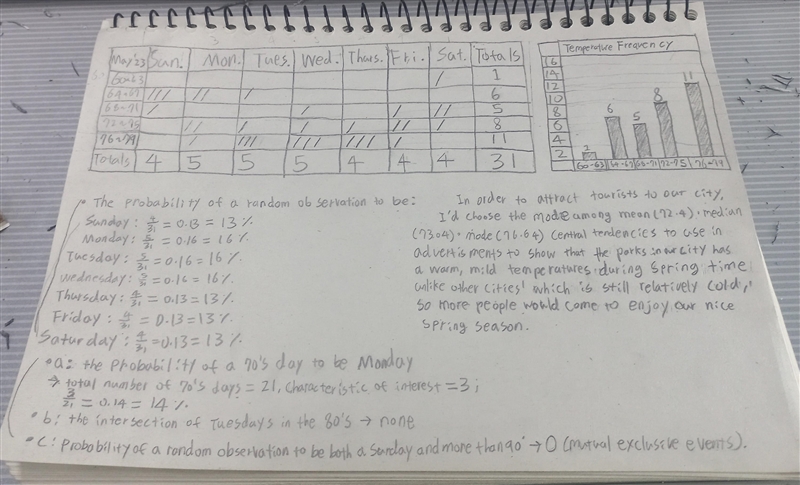 May '23 Sun. Mon. Tues. Wed. Thurs. Fri. Sat. Totals
60-63 / 1
64-67 /// // / 6
68-71 / / / // 5
72-75 // / / / // / 8
76-79 / /// /// /// / 11
Totals 4 5 5 5 4 4 4 31
Temperature Frequency
16
14
12
10
8
6
4
2
1 6 5 8 11
60-63 64-67 68-71 72-75 76-79
• The probability of a random observation to be:
Sunday: 4/31 = 0.13 = 13%
Monday: 5/31 = 0.16 = 16%
Tuesday: 5/31 = 0.16 = 16%
Wednesday: 5/31 = 0.16 = 16%
Thursday: 4/31 = 0.13 = 13%
Friday: 4/31 = 0.13 = 13%
Saturday: 4/31 = 0.13 = 13%
In order to attract tourists to our city,
I'd choose the mode among mean (72.4) • median
(73.04) • mode (76.64) central tendencies to use in
advertisments to show that the parks in our city has
a warm, mild temperatures during spring time
unlike other cities' which is still relatively cold,
so more people would come to enjoy our nice
spring season.
• a: the probability of a 70's day to be Monday
→ total number of 70's days = 21, characteristic of interest = 3;
3/21 = 0.14 = 14%
• b: the intersection of Tuesdays in the 80's → none
• c: probability of a random observation to be both a Sunday and more than 90° → 0 (mutual exclusive events).